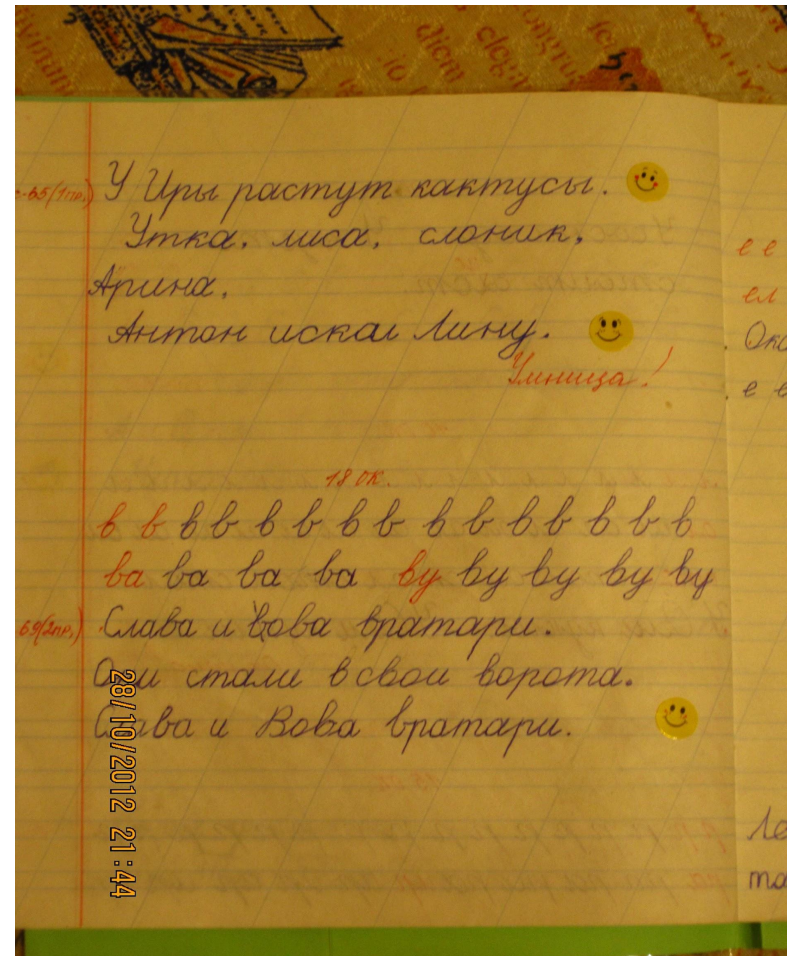 с-65(1пр.) У Иры растут кактусы.
Утка, лиса, слоник,
Арина.
Антон искал Лину.
Умница!
18 ок.
в в в в в в в в в в в в в в в
ва ва ва ва ву ву ву ву ву
69(2пр.) Слава и Вова вратари.
Они стали в свои ворота.
Слава и Вова вратари.
28/10/2012 21:44
е е
ел
е е